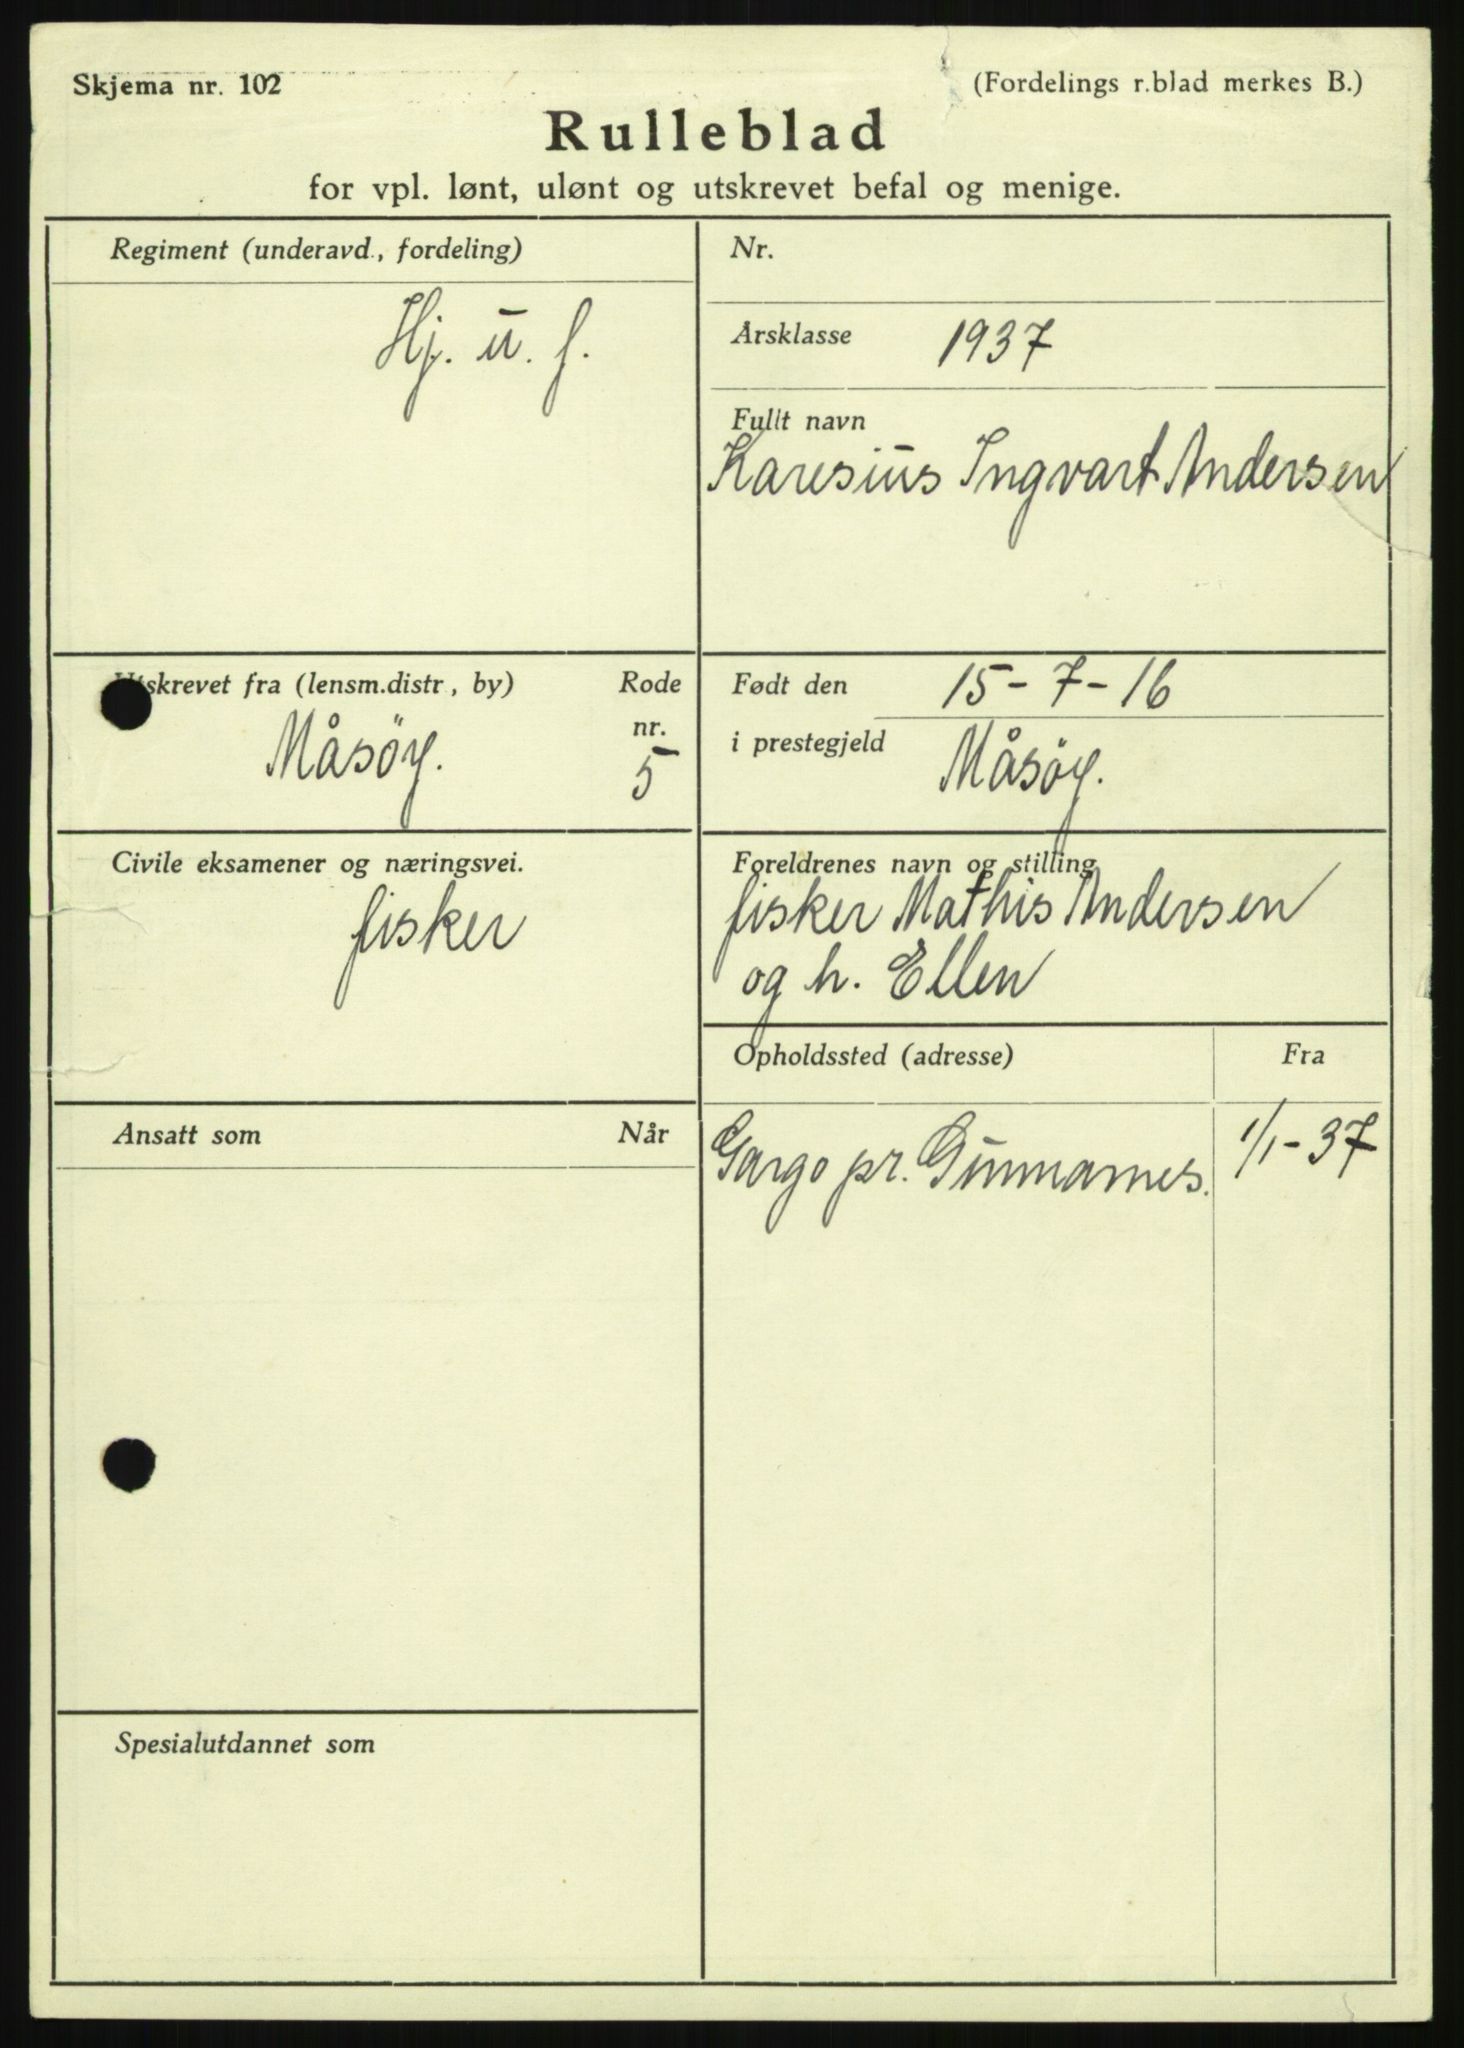 Skjema nr. 102
(Fordelings r.blad merkes B.)
Rulleblad
for vpl. lønt, ulønt og utskrevet befal og menige.
Regiment (underavd., fordeling)
Hj. u. f.
Nr.
Årsklasse 1937
Fullt navn
Karesius Ingvart Andersen
Utskrevet fra (lensm.distr., by)
Måsøy.
Rode
nr.
5
Født den 15-7-16
i prestegjeld Måsøy.
Civile eksamener og næringsvei.
fisker
Foreldrenes navn og stilling
fisker Mathis Andersen
og h. Ellen
Opholdssted (adresse) Fra
Gargo pr. Gunnarnes. 1/1-37
Ansatt som Når
Spesialutdannet som